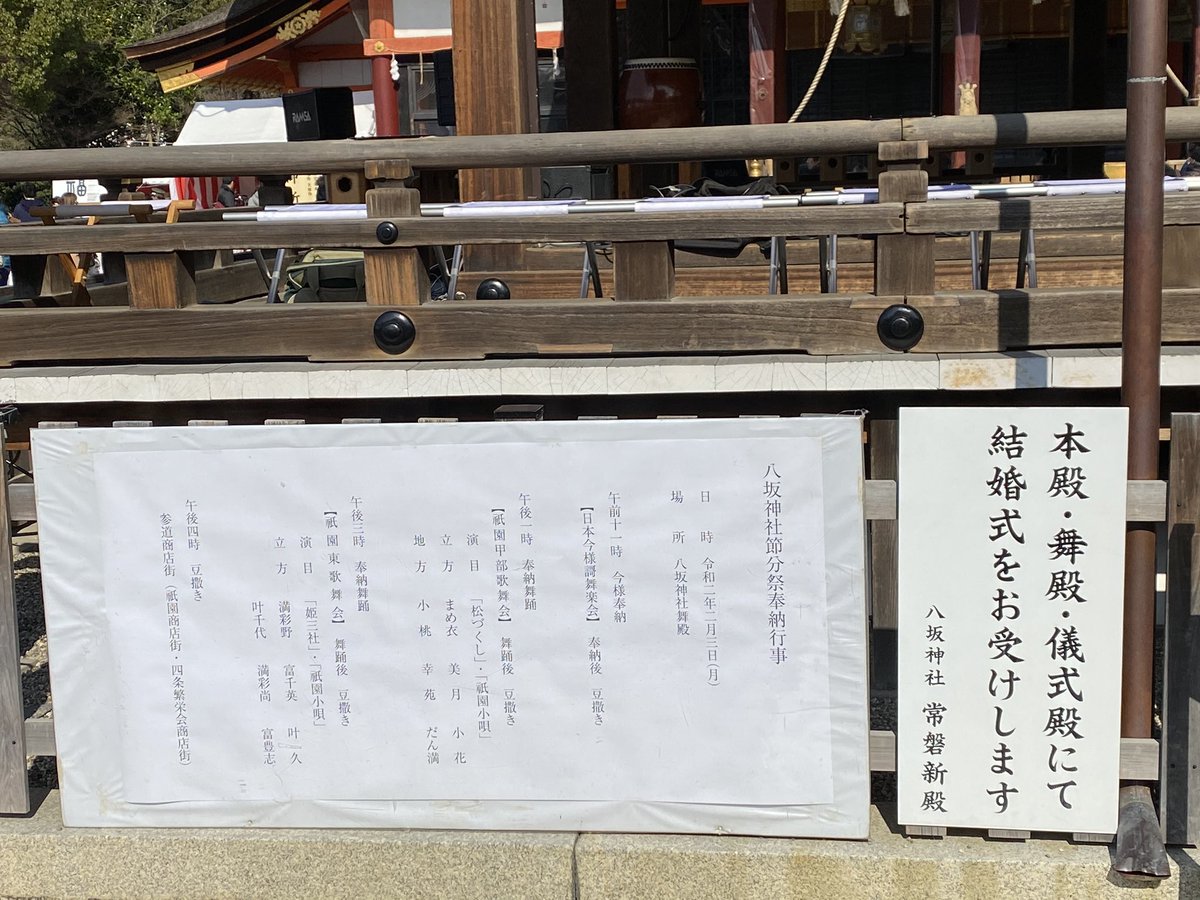 八坂神社節分祭奉納行事
日 時 令和二年二月三日(月)
場 所 八坂神社舞殿
午前十一時 今様奉納
【日本今様謌舞楽会】 奉納後 豆撒き
午後一時 奉納舞踊
【祇園甲部歌舞会】 舞踊後 豆撒き
演 目 「松づくし」・「祇園小唄」
立 方 まめ衣 美 月 小 花
地 方 小 桃 幸 苑 だん満
午後三時 奉納舞踊
【祇園東歌舞会】 舞踊後 豆撒き
演 目 「姫三社」・「祇園小唄」
立 方 満彩野 富千英 叶 久
叶千代 満彩尚 富豊志
午後四時 豆撒き
参道商店街 (祇園商店街・四条繁栄会商店街)
本殿・舞殿・儀式殿にて
結婚式をお受けします
八坂神社 常磐新殿
RAMSA
RAMSA